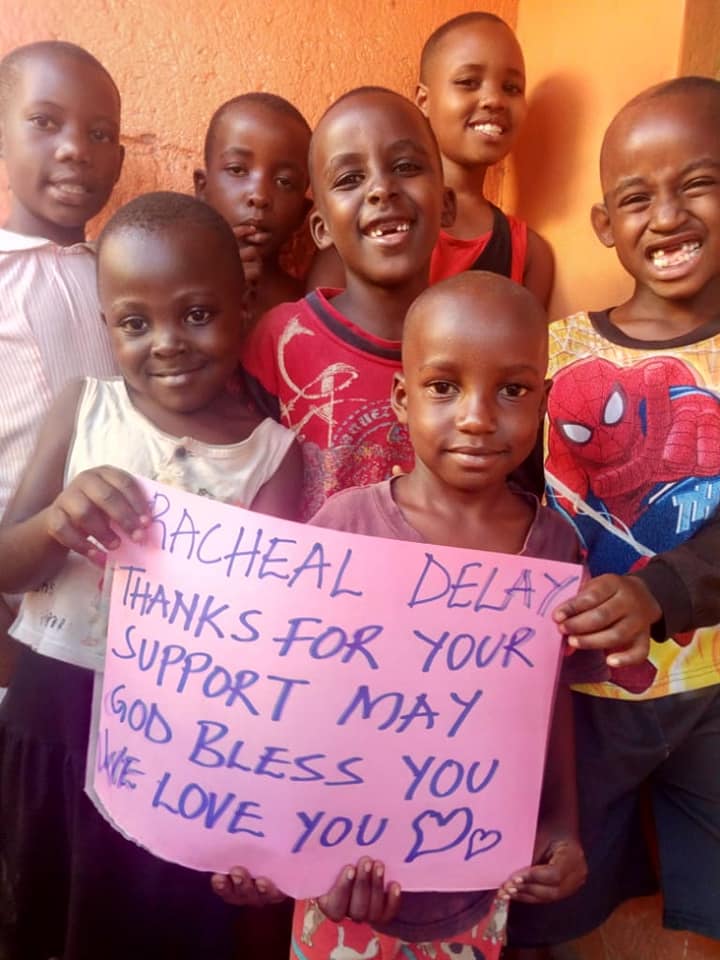 RACHEAL DELAY
THANKS FOR YOUR
SUPPORT MAY
GOD BLESS YOU
WE LOVE YOU